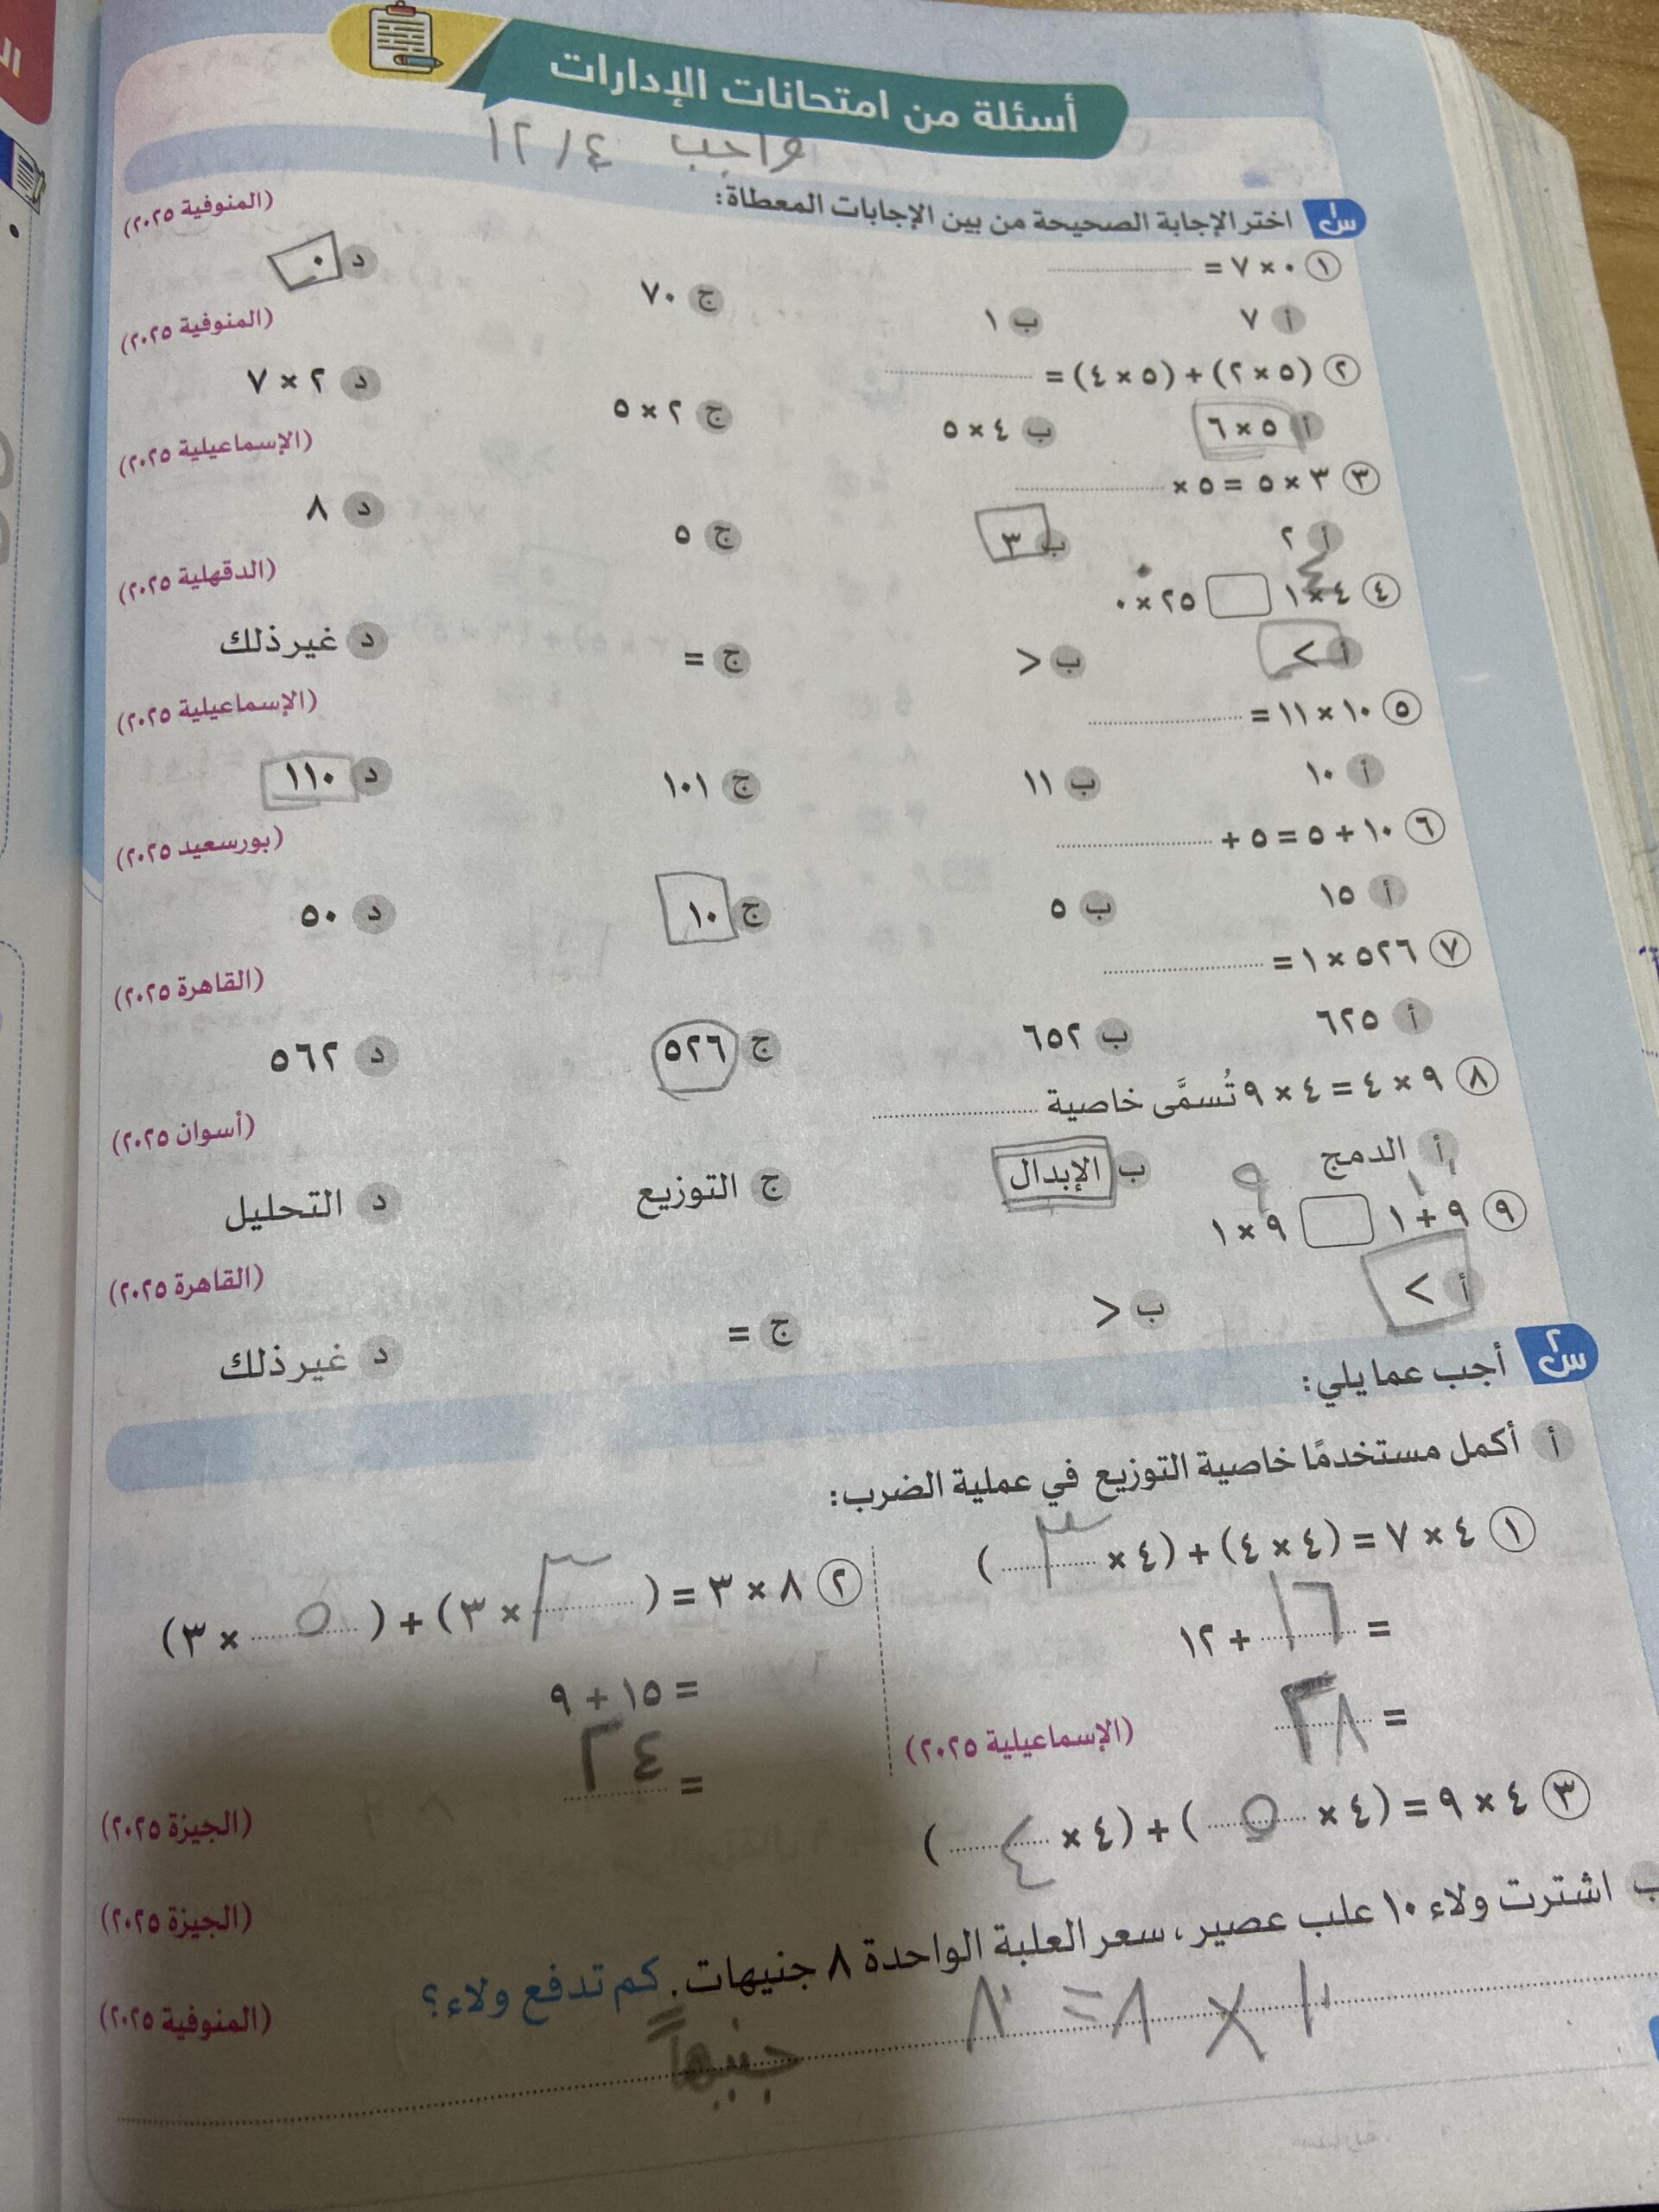 أسئلة من امتحانات الإدارات
واجب ١٢/٤
س١ اختر الإجابة الصحيحة من بين الإجابات المعطاة:
١ ٠ × ٧ = (المنوفية ٢٠٢٥)
أ ٧ ب ١ ج ٧٠ د ٠
٢ (٥ × ٢) + (٥ × ٤) = (المنوفية ٢٠٢٥)
أ ٥ × ٦ ب ٤ × ٥ ج ٢ × ٥ د ٢ × ٧
٣ ٣ × ٥ = ٥ × (الإسماعيلية ٢٠٢٥)
أ ٢ ب ٣ ج ٥ د ٨
٤ ٤ × ١ ٢٥ × ٠ (الدقهلية ٢٠٢٥)
٤ ٠
أ > ب < ج = د غير ذلك
٥ ١٠ × ١١ = (الإسماعيلية ٢٠٢٥)
أ ١٠ ب ١١ ج ١٠١ د ١١٠
٦ ١٠ + ٥ = ٥ + (بورسعيد ٢٠٢٥)
أ ١٥ ب ٥ ج ١٠ د ٥٠
٧ ٥٢٦ × ١ = (القاهرة ٢٠٢٥)
أ ٦٢٥ ب ٦٥٢ ج ٥٢٦ د ٥٦٢
٨ ٩ × ٤ = ٤ × ٩ تُسمَّى خاصية (أسوان ٢٠٢٥)
أ الدمج ب الإبدال ج التوزيع د التحليل
٩ ٩ + ١ ٩ × ١ (القاهرة ٢٠٢٥)
٩
أ > ب < ج = د غير ذلك
س٢ أجب عما يلي:
أ أكمل مستخدمًا خاصية التوزيع في عملية الضرب:
١ ٤ × ٧ = (٤ × ٤) + (٤ × ٣)
= ١٦ + ١٢
= ٢٨ (الإسماعيلية ٢٠٢٥)
٢ ٨ × ٣ = (٣ × ٣) + (٥ × ٣)
= ١٥ + ٩
= ٢٤ (الجيزة ٢٠٢٥)
٣ ٤ × ٩ = (٤ × ٥) + (٤ × ٤) (الجيزة ٢٠٢٥)
ب اشترت ولاء ١٠ علب عصير، سعر العلبة الواحدة ٨ جنيهات. كم تدفع ولاء؟ (المنوفية ٢٠٢٥)
١٠ × ٨ = ٨٠ جنيهاً